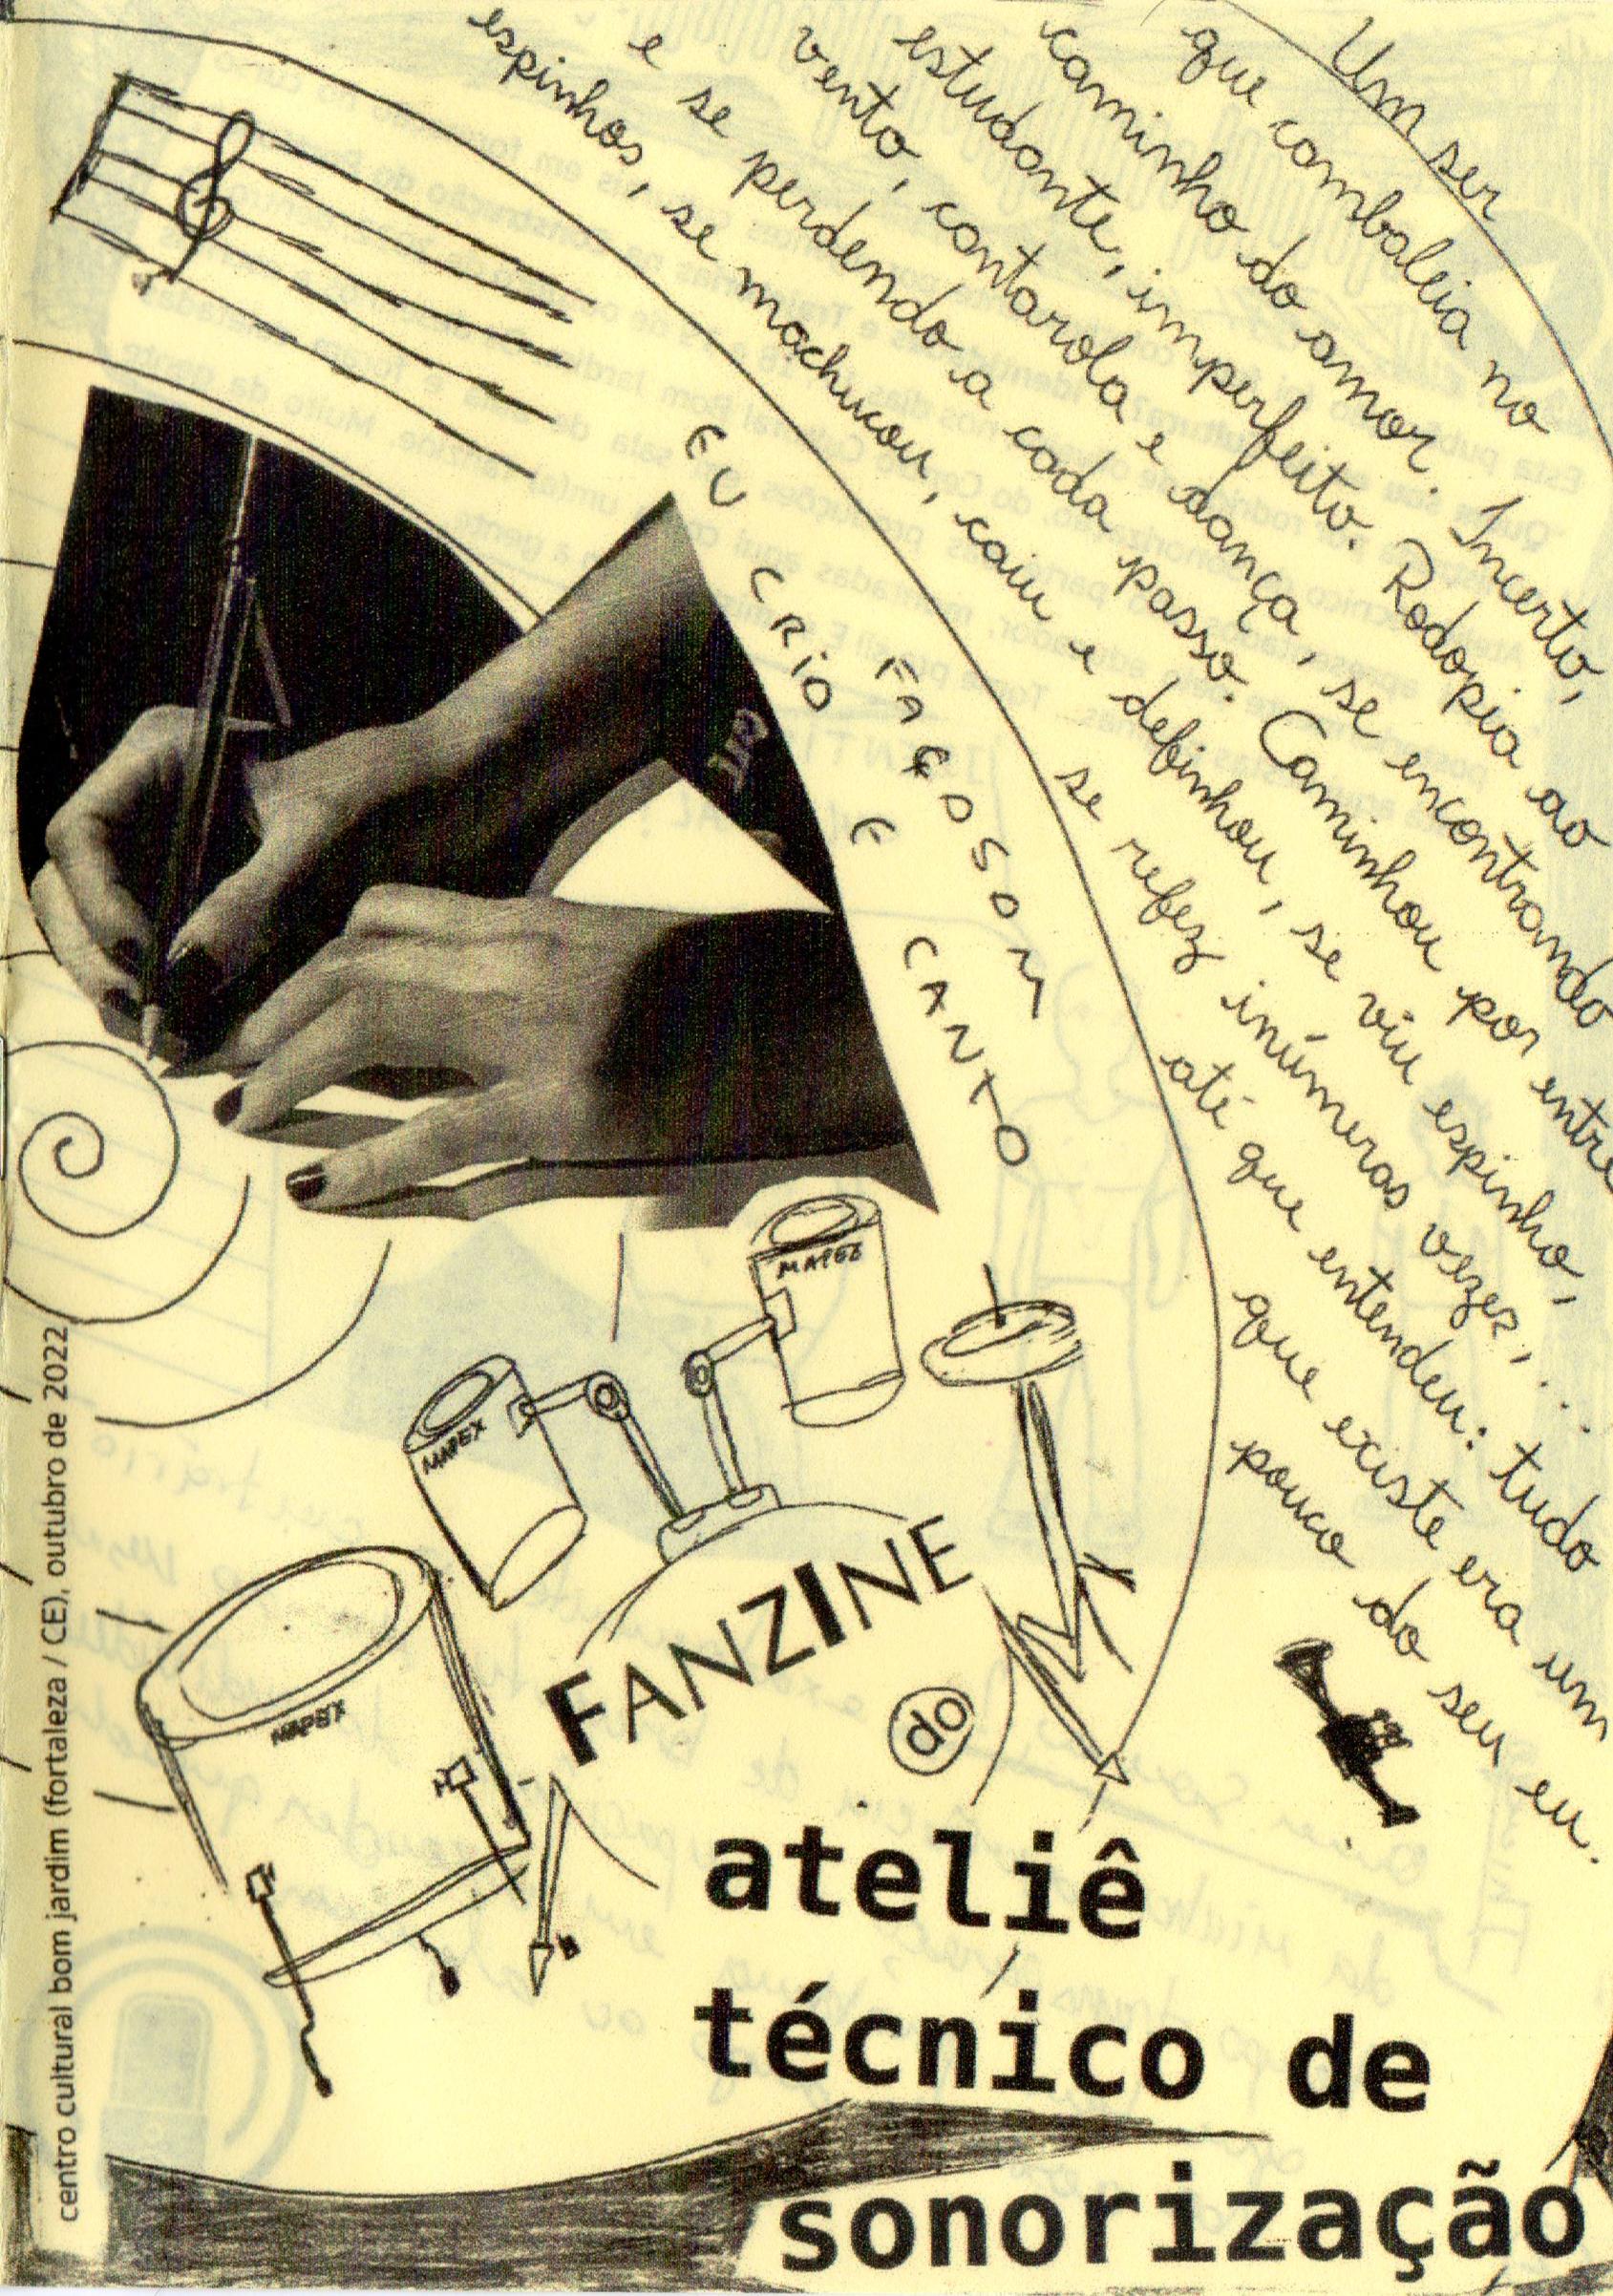 Um ser
que cambaleia no
caminho do amor. Incerto,
estudante, imperfeito. Rodopia ao
vento, cantarola e dança, se encontrando
e se perdendo a cada passo. Caminhou por entre
espinhos, se machucou, caiu e definhou, se viu espinho,
se refez inúmeras vezes, ...
até que entendeu: tudo
que existe era um
pouco do seu eu.
EU CRIO E CANTO
FAÇO SOM
MAPEX
MAPEX
MAPEX
FANZINE
do
ateliê
técnico de
sonorização
centro cultural bom jardim (fortaleza / CE), outubro de 2022